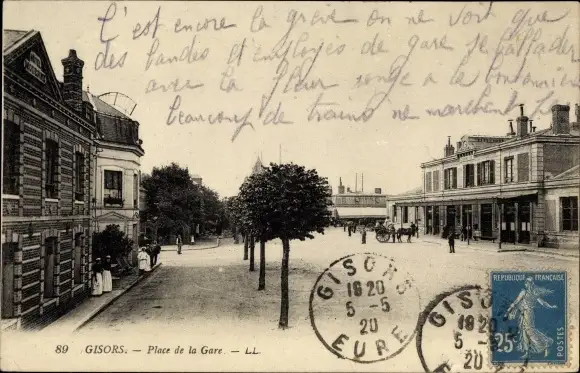 C'est encore la grève on ne voit que
des bandes et employés de gare se ballader
avec la fleur rouge a la boutonnière
beaucoup de trains ne marchent
GISORS
18 20
5-5
20
EURE
GISORS
18 20
5-
20
REPUBLIQUE FRANÇAISE
25c
POSTES
89 GISORS. — Place de la Gare. — LL